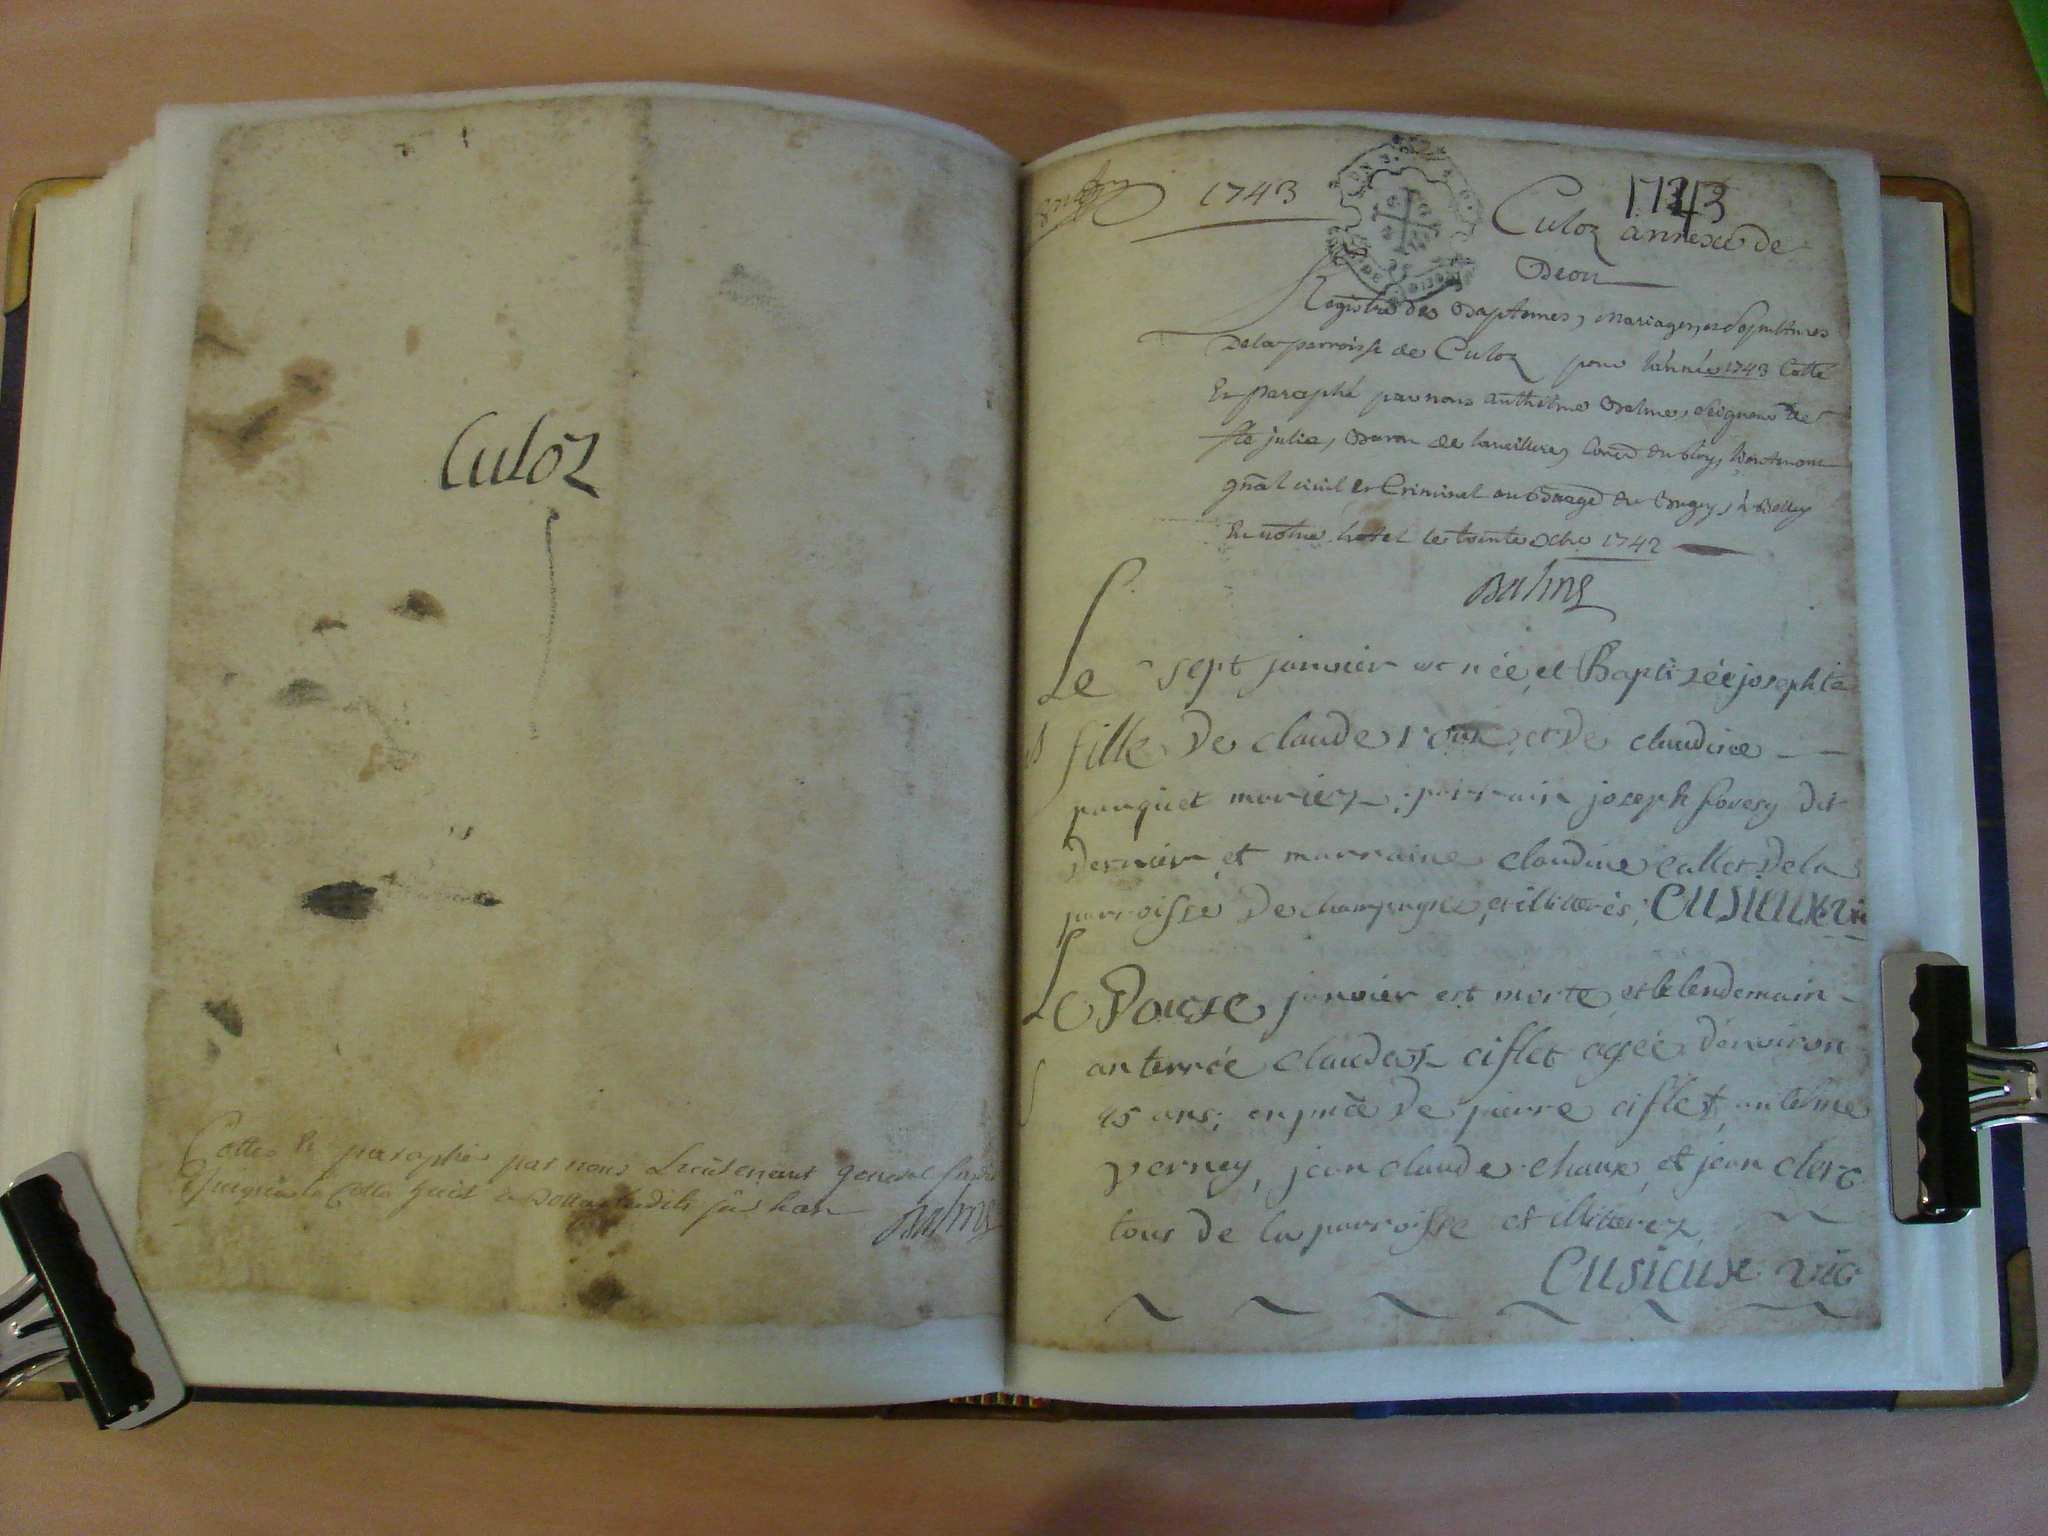 Culoz
Cottes et paraphé par nous Lieutenant general
Culoz
1743
1743
Culoz annexe de
Beon
Registre des Baptemes, mariages, et Sepultures
De la parroisse de Culoz pour l'année 1743 Cotté
Et Paraphé par nous anthelme Balme, Seigneur de
ste julie, Baron de
gñal civil et Criminel au Baage du Bugey, à Belley
En notre hotel le trente 1742
Balme
Balme
Le sept janvier est née et Baptizée josephte
fille de claude roux et de claudine
pauquet mariez, parrain joseph dit
Dernier et marraine claudine callet De la
parroisse De champagne, et illiterés; CUSIEUX vic
Le Douze janvier est morte et le lendemain
anterrée clauda ciflet agée d'environ
45 ans; en pñce De pierre ciflet, antelme
verney, jean claude chaux, et jean clerc
tous de la parroisse et illiterez
CUSIEUX vic